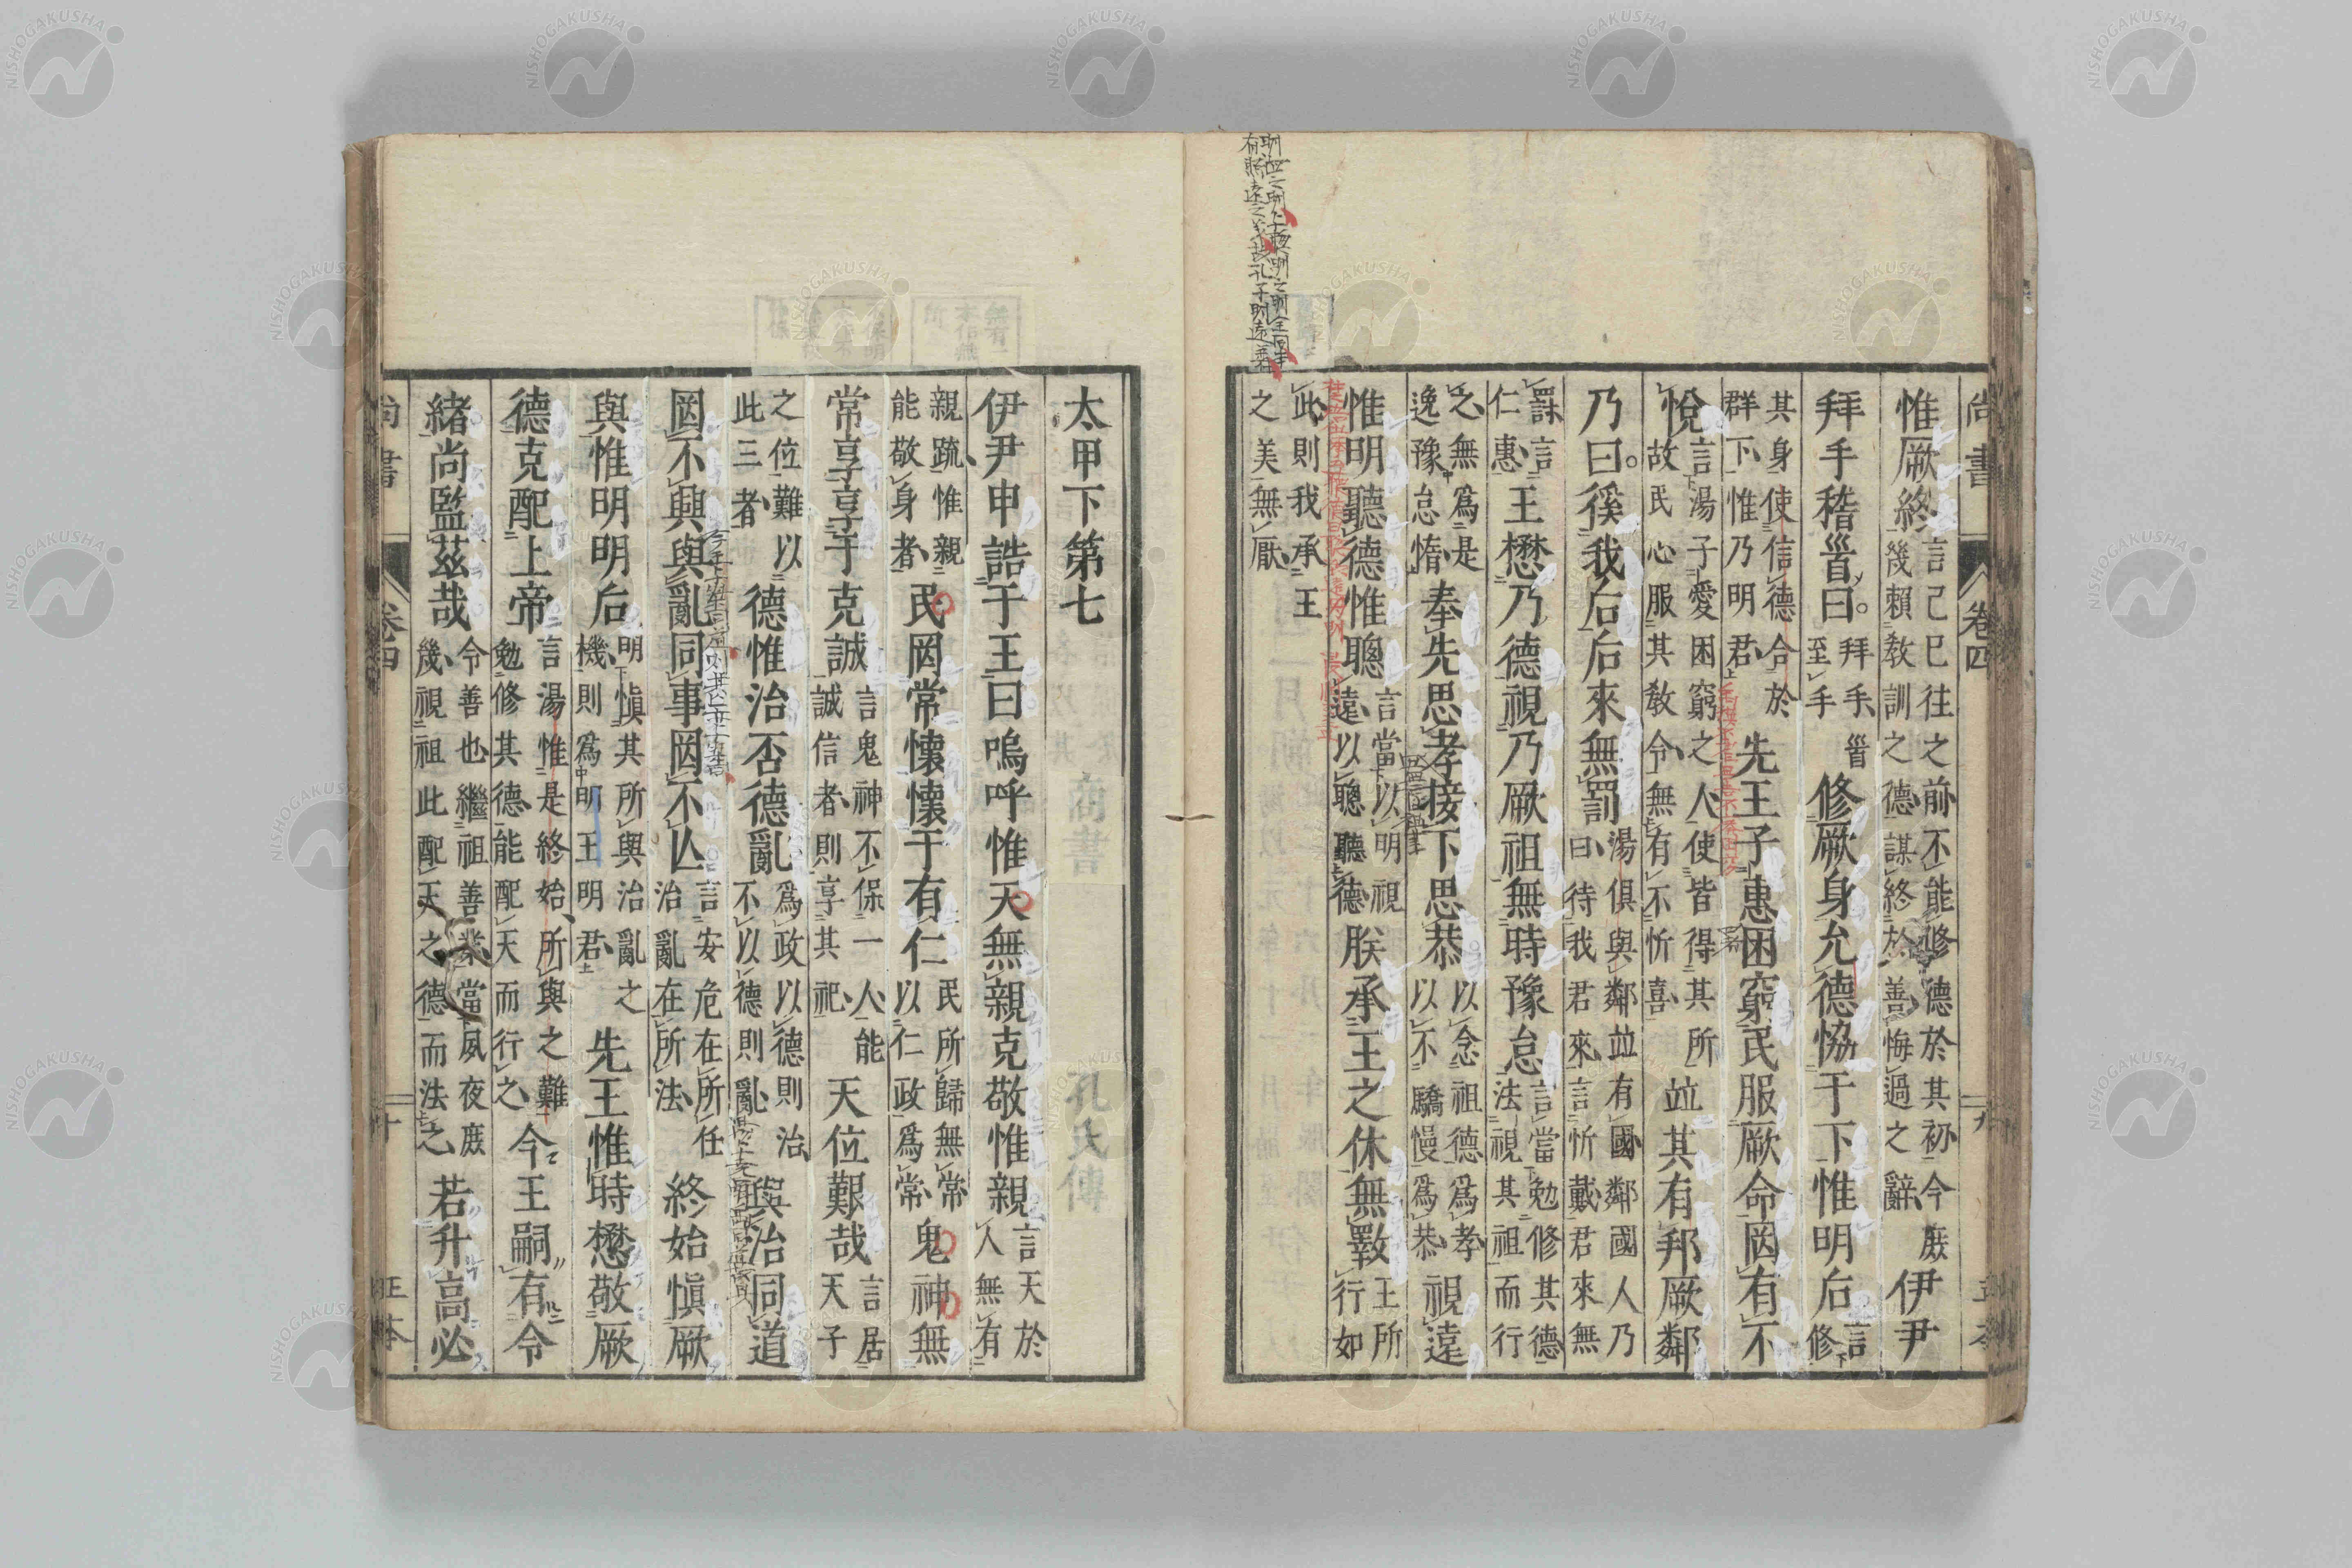 尚書 卷四 九
惟厥終言己已往之前不能修德於其初今庶幾賴教訓之德謀終於善悔過之辭伊尹
拜手稽首曰拜手首至手修厥身允德協于下惟明后言修
其身使信德合於群下惟乃明君先王子惠困窮民服厥命罔有不
悅言湯子愛困窮之人使皆得其所故民心服其教令無有不忻喜竝其有邦厥鄰
乃曰徯我后后來無罰湯俱與鄰竝有國鄰國人乃曰待我君來言忻戴君來無
罰言仁惠王懋乃德視乃厥祖無時豫怠言當勉修其德法視其祖而行
之無爲是逸豫怠惰奉先思孝接下思恭以念祖德爲孝以不驕慢爲恭視遠
惟明聽德惟聰言當以明視遠以聰聽德朕承王之休無斁王所行如
此則我承王之美無厭
太甲下第七 商書 孔氏傳
伊尹申誥于王曰嗚呼惟天無親克敬惟親言天於人無有
親疏惟親能敬身者民罔常懷懷于有仁民所歸無常以仁政爲常鬼神無
常享享于克誠言鬼神不保一人能誠信者則享其祀天位艱哉言居天子
之位難以此三者德惟治否德亂爲政以德則治不以德則亂與治同道
罔不興與亂同事罔不亡言安危在所任治亂在所法終始愼厥
與惟明明后明愼其所與治亂之機則爲明王明君先王惟時懋敬厥
德克配上帝言湯惟是終始所與之難勉修其德能配天而行之今王嗣有令
緒尚監茲哉令善也繼祖善業當夙夜庶幾視祖此配天之德而法之若升高必
尚書 卷四 十
NISHOGAKUSHA